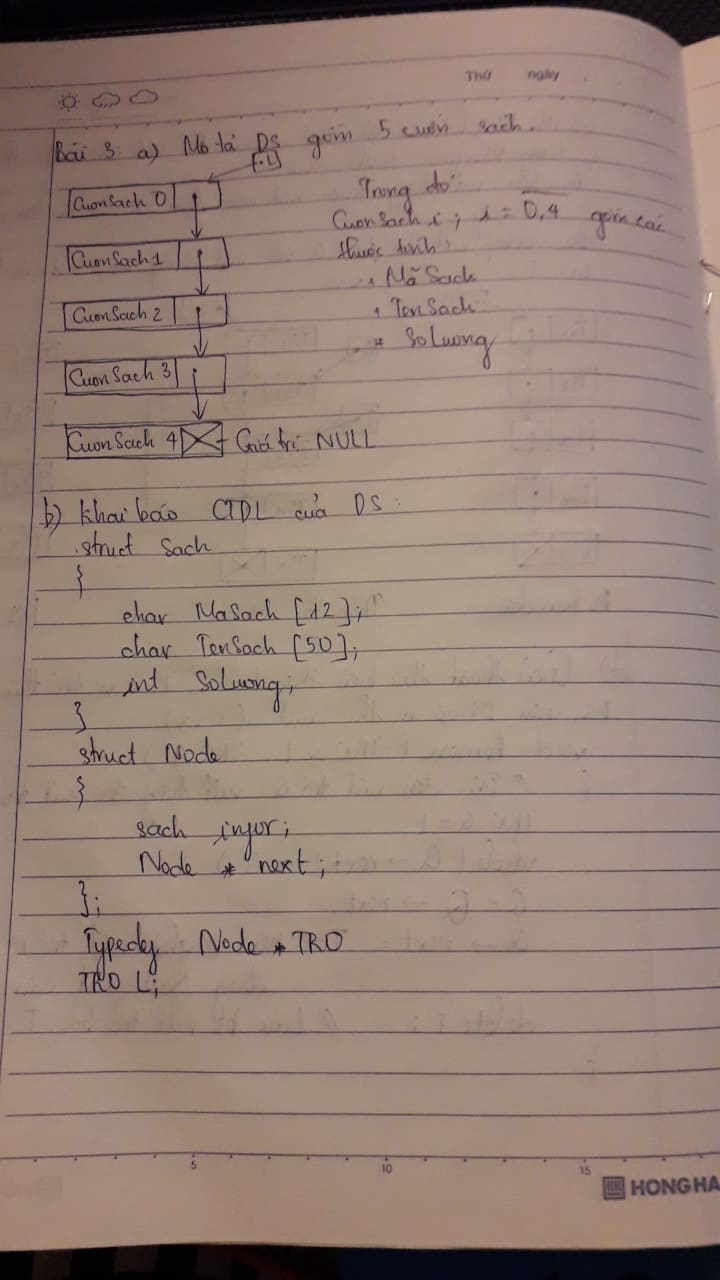 Thứ ngày
Bài 3: a) Mô tả DS gồm 5 cuốn sách.
.L
CuonSach 0
CuonSach 1
CuonSach 2
CuonSach 3
CuonSach 4 Giá trị NULL
Trong đó
CuonSach i; i = 0,4 gồm các
thuộc tính:
+ MãSach
+ TenSach
* SoLuong
b) Khai báo CTDL của DS:
struct Sach
{
char MaSach [12];
char TenSach [50];
int SoLuong;
}
struct Node
{
sach infor;
Node * next;
};
Typedef Node * TRO
TRO L;
5 10 15
HONG HA